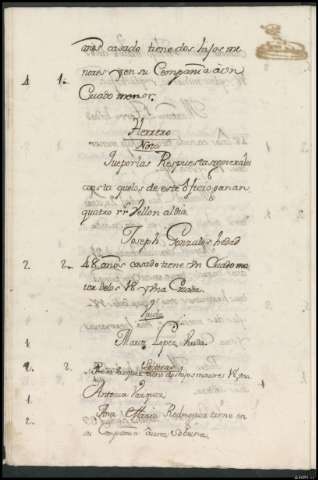 años casado tiene dos hijos me
nores y en su Compañia á un
4 1 Cuado menor.
Herrero
Nota
Que por las Respuestas generales
consta que los de este oficio ganan
quatro rr.s vellon al dia
Joseph Gonzales hedad
2 2 48 años casado tiene Un Cuado ma
ior delos 18 y una Cuada.
Viuda
1 Maria Lopez viuda.
Solteras
2 tiene dos hijos maiores 18 y una
1 Antonia Vazquez
2 Ana Maria Rodriguez tiene en
su Compañia a una Sobrina.